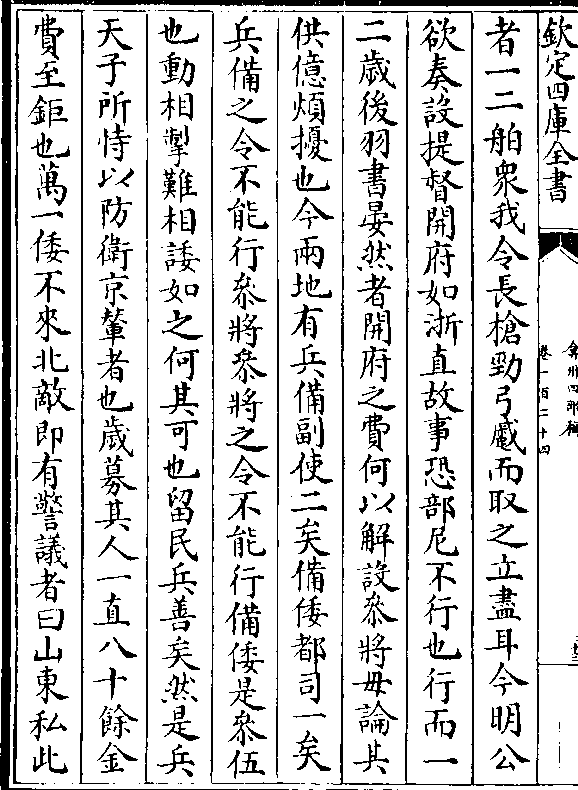 欽定四庫全書
弇州四部稿
卷一百二十四
者一二舶衆我令長槍勁弓戲而取之立盡耳今明公
欲奏設提督開府如浙直故事恐部尼不行也行而一
二歲後羽書晏然者開府之費何以解設叅將毋論其
供億煩擾也今兩地有兵備副使二矣備倭都司一矣
兵備之令不能行叅將叅將之令不能行備倭是叅伍
也動相掣難相諉如之何其可也留民兵善矣然是兵
天子所恃以防衛京輦者也歲募其人一直八十餘金
費至鉅也萬一倭不來北敵即有警議者曰山東私此